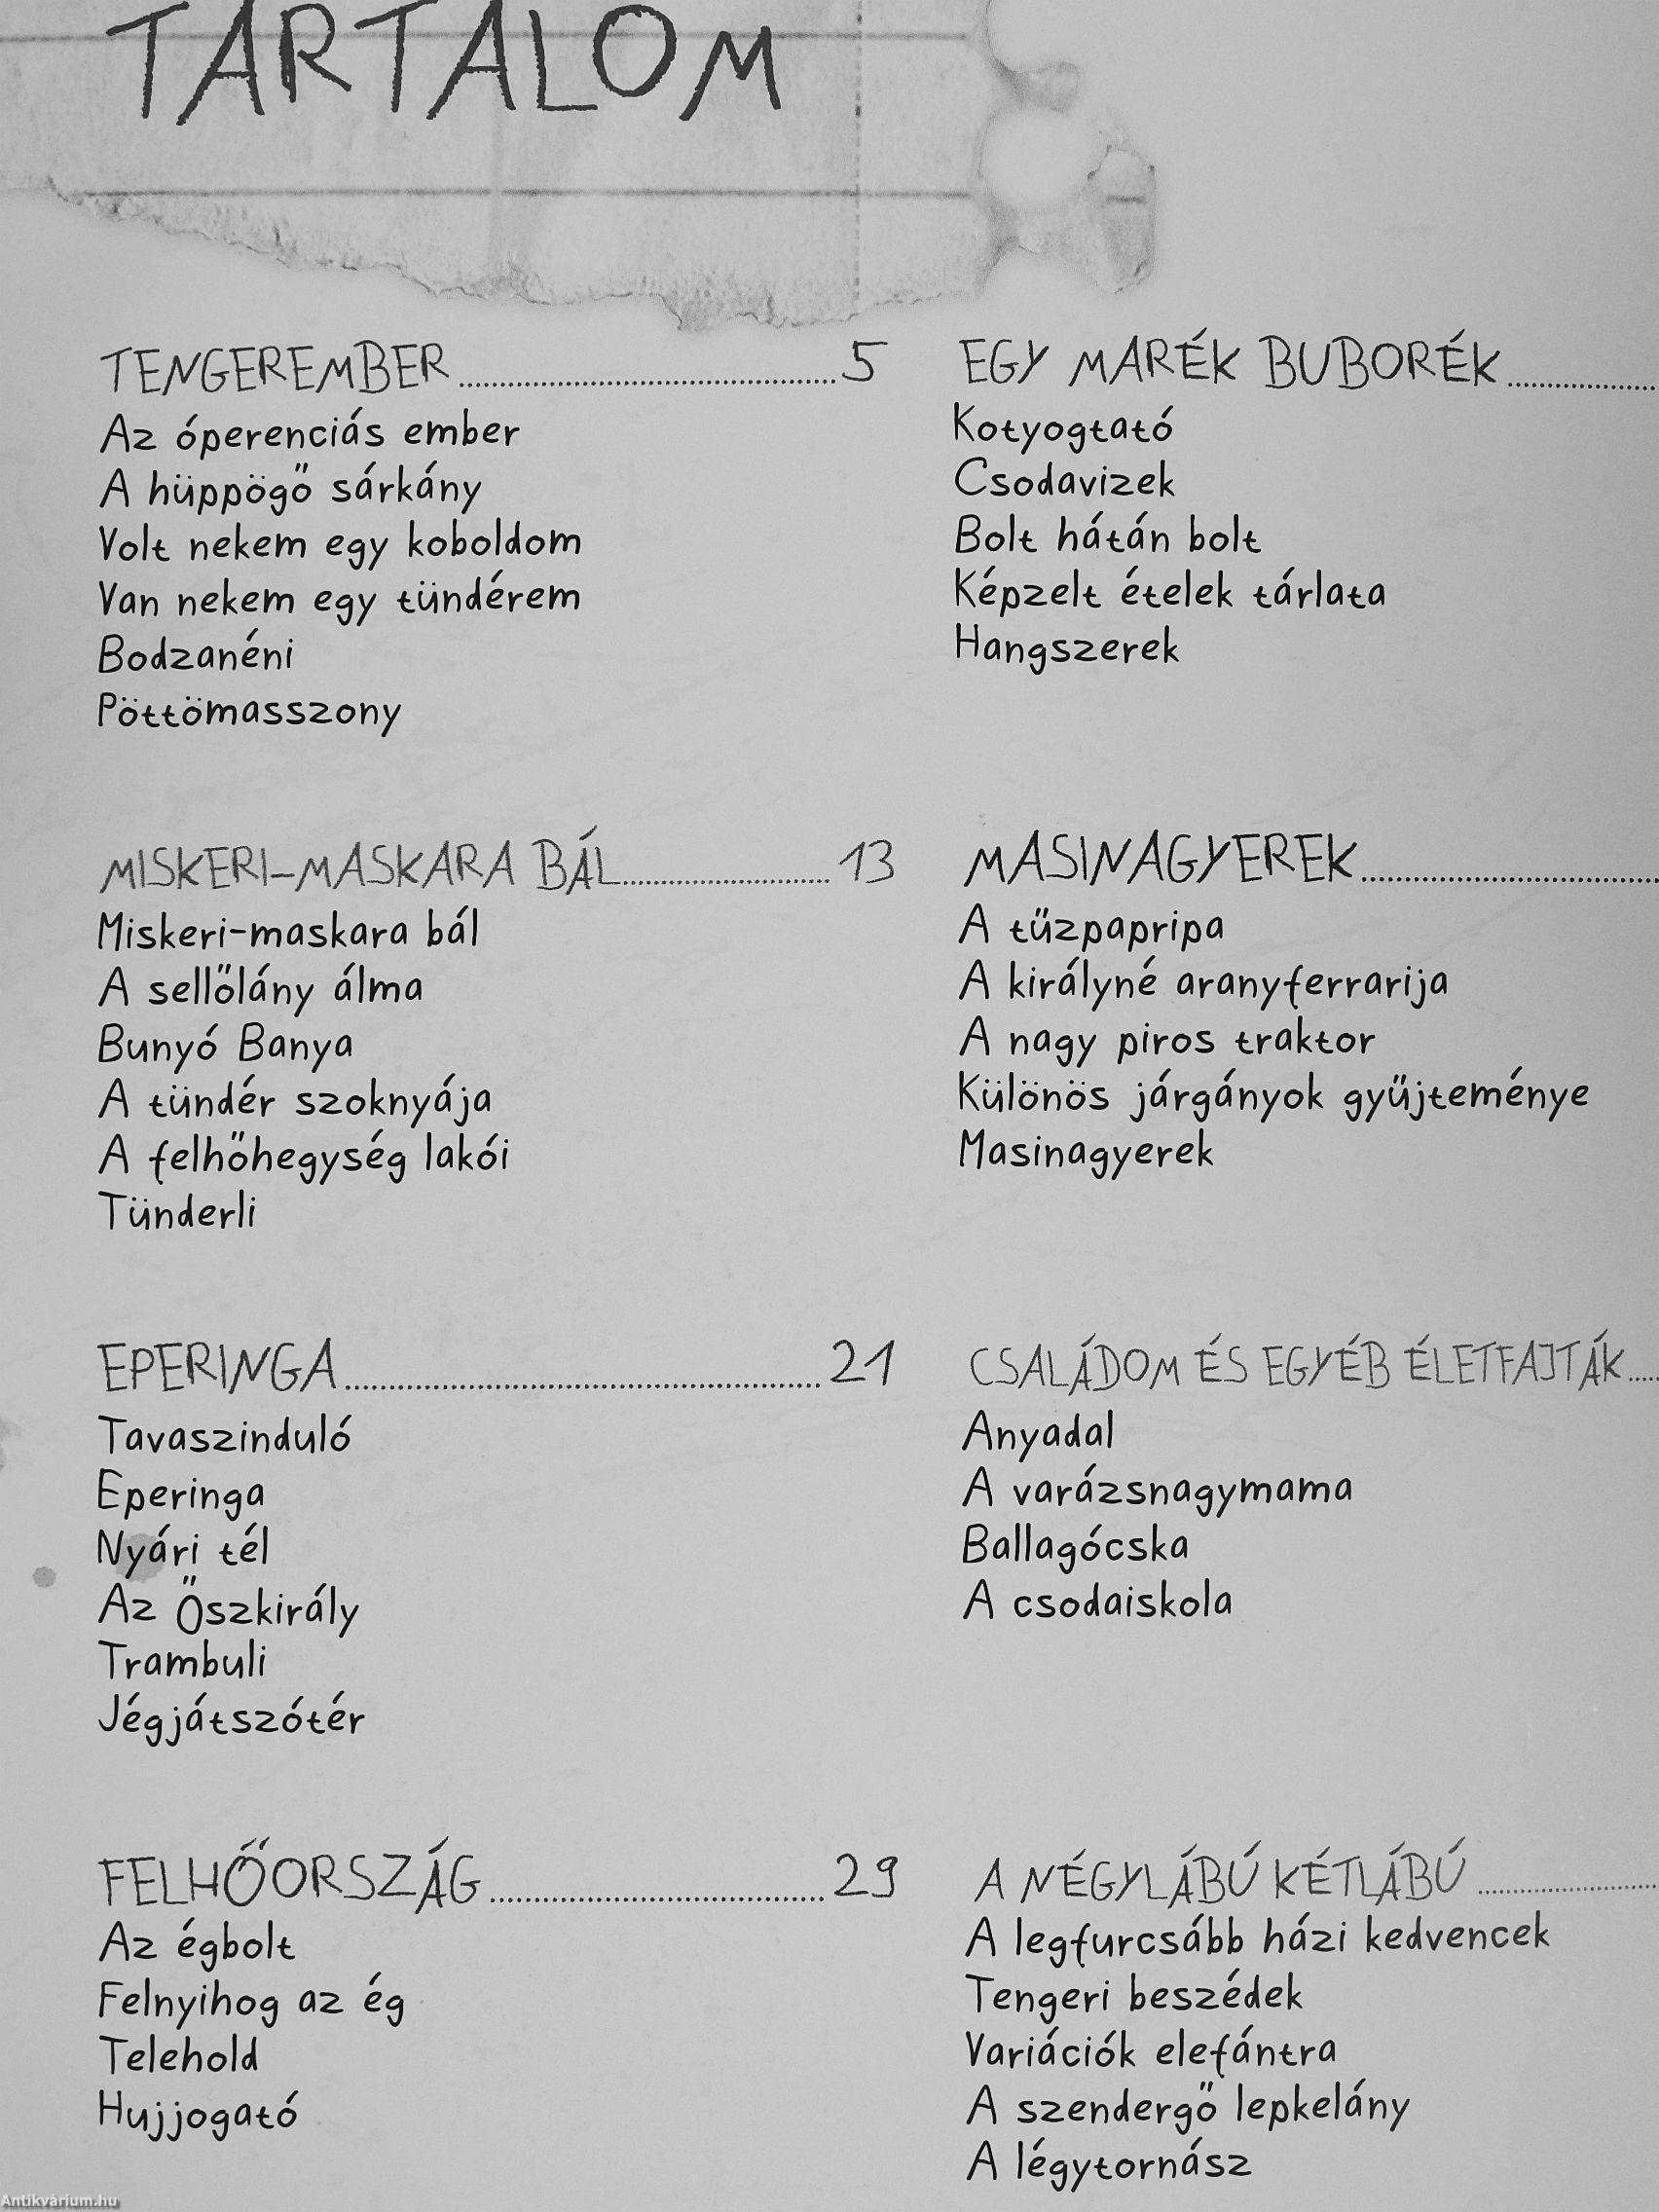 TARTALOM
TENGEREMBER..........5
Az óperenciás ember
A hüppögő sárkány
Volt nekem egy koboldom
Van nekem egy tündérem
Bodzanéni
Pöttömasszony
MISKERI-MASKARA BÁL..........13
Miskeri-maskara bál
A sellőlány álma
Bunyó Banya
A tündér szoknyája
A felhőhegység lakói
Tünderli
EPERINGA..........21
Tavaszinduló
Eperinga
Nyári tél
Az Őszkirály
Trambuli
Jégjátszótér
FELHŐORSZÁG..........29
Az égbolt
Felnyihog az ég
Telehold
Hujjogató
EGY MARÉK BUBORÉK..........
Kotyogtató
Csodavizek
Bolt hátán bolt
Képzelt ételek tárlata
Hangszerek
MASINAGYEREK..........
A tűzpapripa
A királyné aranyferrarija
A nagy piros traktor
Különös járgányok gyűjteménye
Masinagyerek
CSALÁDOM ÉS EGYÉB ÉLETFAJTÁK.....
Anyadal
A varázsnagymama
Ballagócska
A csodaiskola
A NÉGYLÁBÚ KÉTLÁBÚ..........
A legfurcsább házi kedvencek
Tengeri beszédek
Variációk elefántra
A szendergő lepkelány
A légytornász
Antikvárium.hu